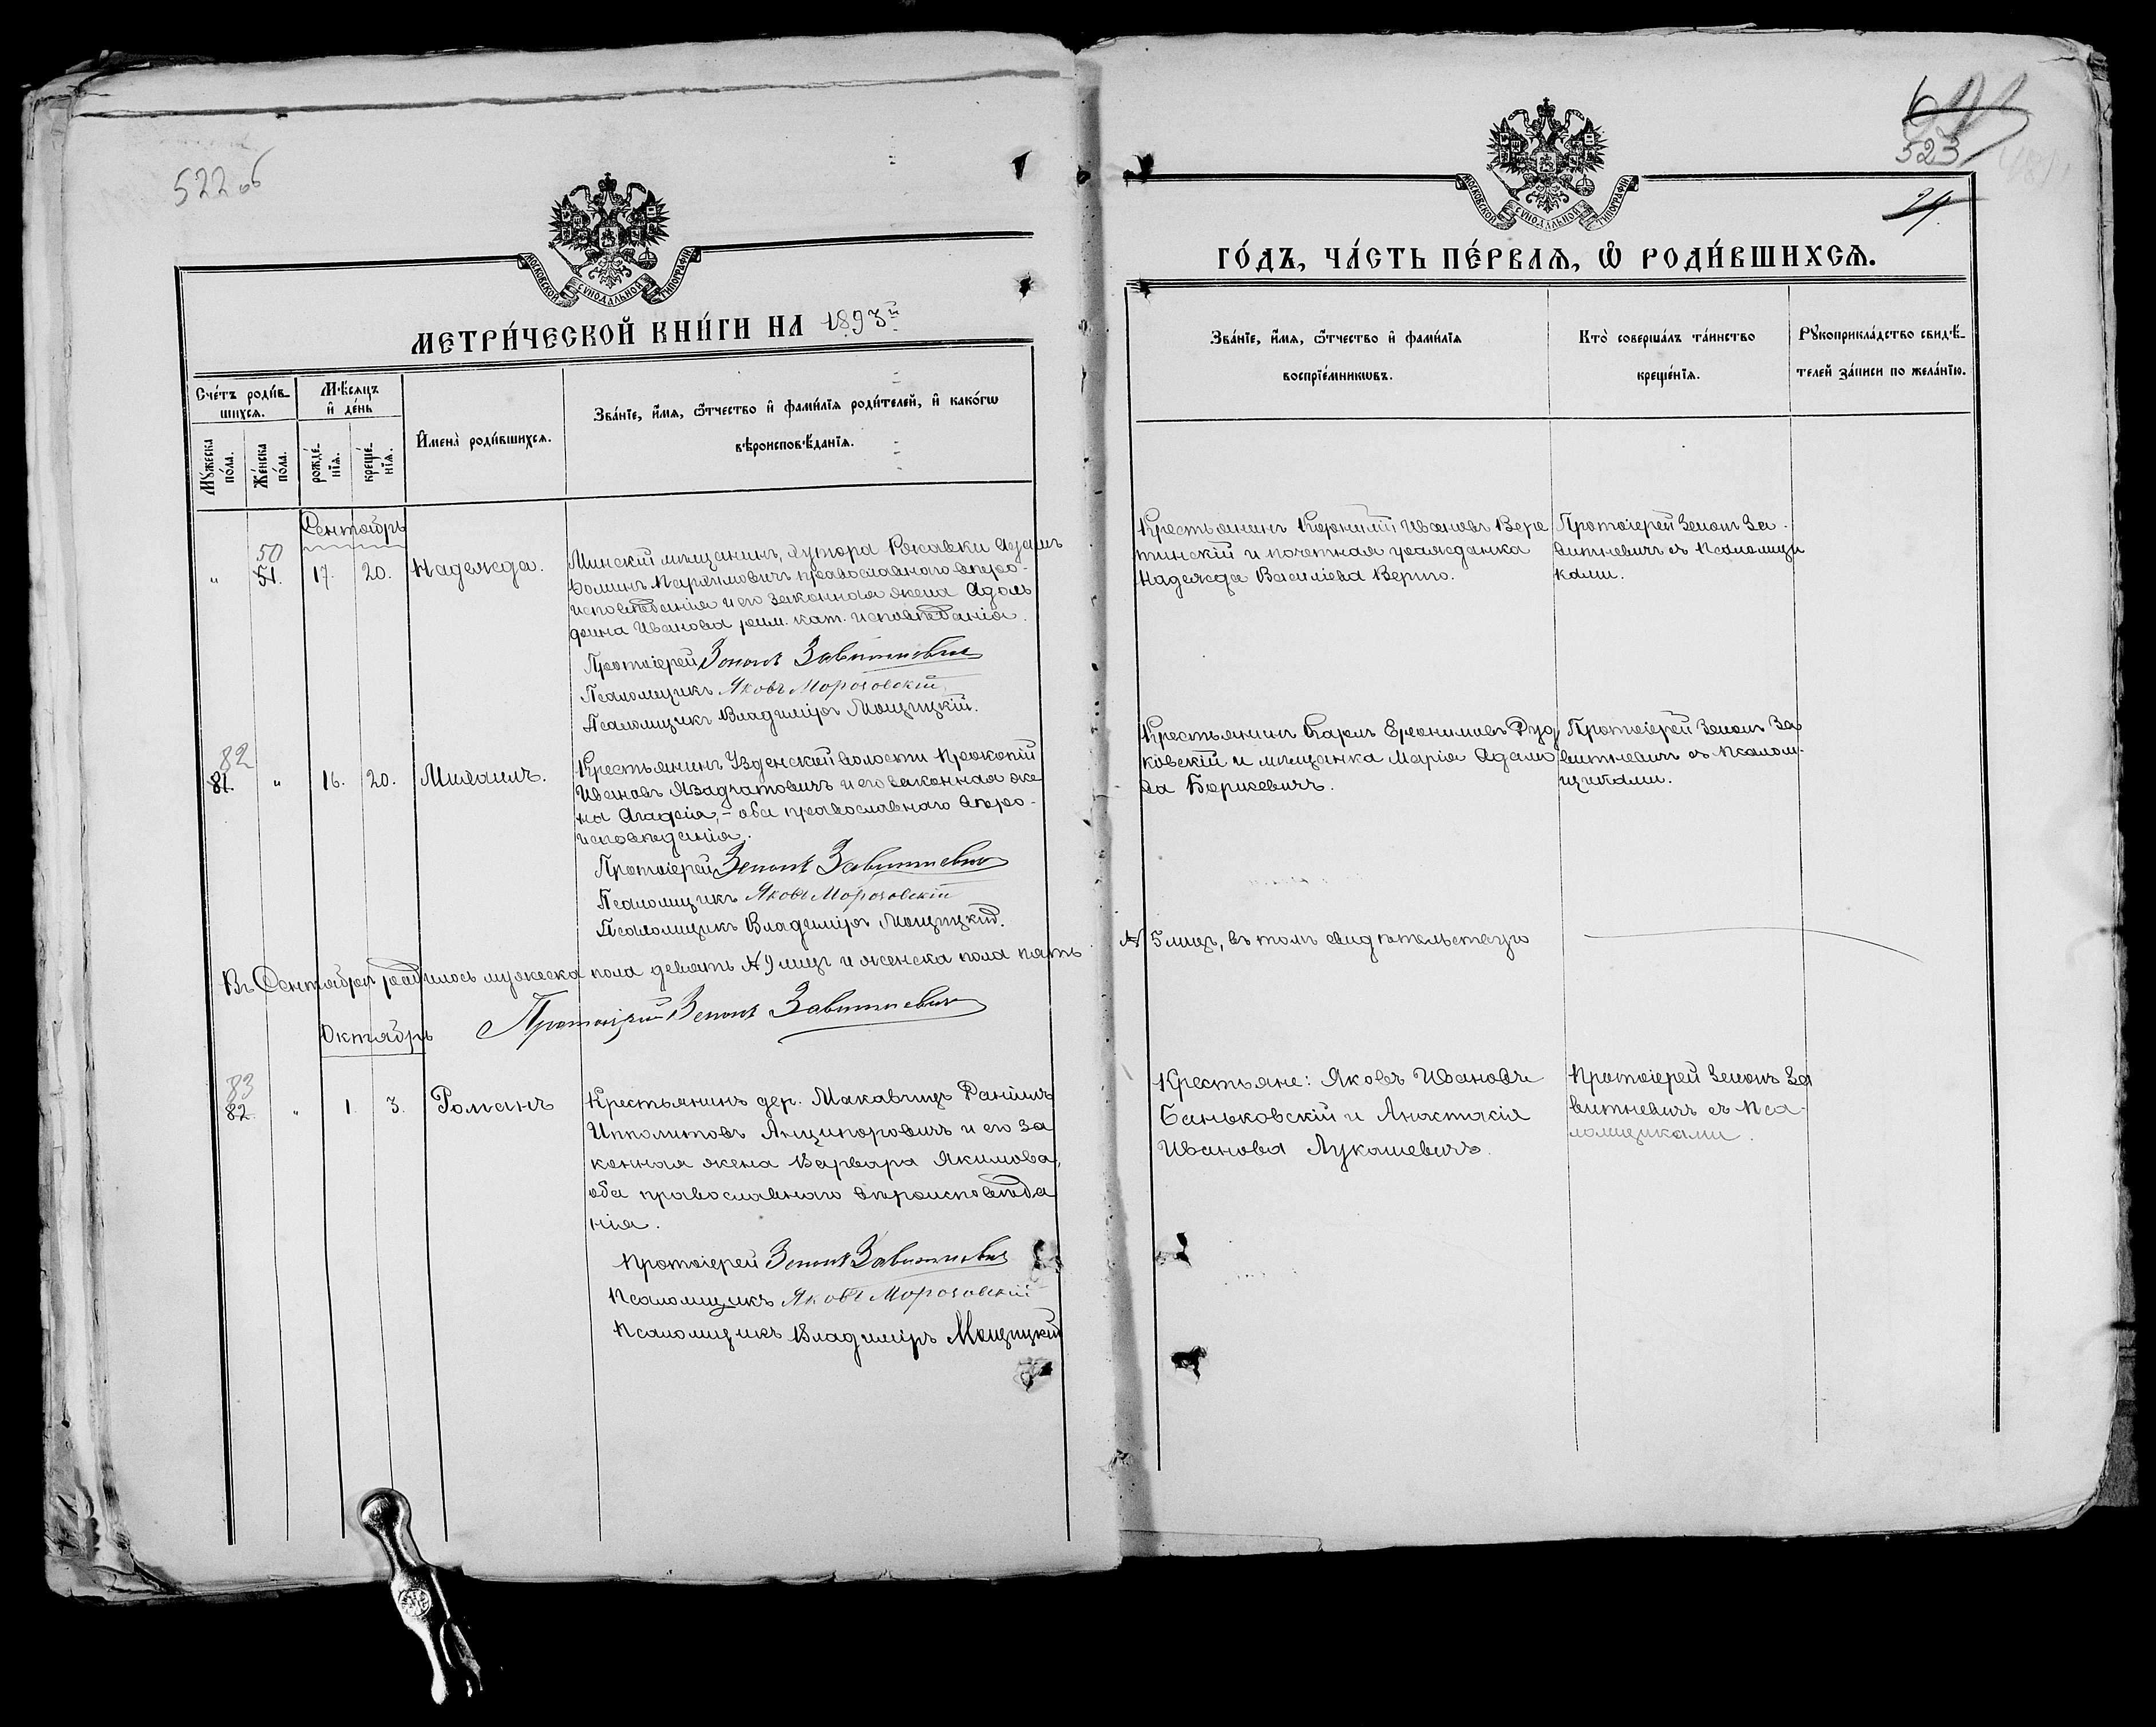 522 об
МОСКОВСКОЙ СѴНОДАЛЬНОЙ ТИПОГРАФІИ
МЕТРИ́ЧЕСКОЙ КНИ́ГИ НА 1893й
Сче́тъ роди́вшихся.
Мѣ́сяцъ и҆ де́нь
Му́жеска по́ла.
Же́нска по́ла.
рожде́нїя.
креще́нїя.
И҆мена̀ роди́вшихся.
Зва́нїе, и҆́мя, ѻ҆́тчество и҆ фами́лїя роди́телей, и҆ како́гѡ
вѣроисповѣ́данїя.
Сентябрь
50
"
51.
17.
20.
Надежда.
Минскій мѣщанинъ, хутора Рокавки Адамъ
православнаго вѣро-
исповѣданія и его законная жена Адоль
фина Иванова рим. кат. исповѣданія.
Протоіерей Зенонъ Завитневич
Псаломщикъ Яковъ Морозовскій
Псаломщикъ Владиміръ Мощицкій.
82
81.
"
16.
20.
Михаилъ.
Крестьянинъ Узденской волости Прокопій
Ивановъ и его законная же
на Агафія, - оба православнаго вѣро-
исповѣданія.
Протоіерей Зенонъ Завитневич
Псаломщикъ Яковъ Морозовскій
Псаломщикъ Владиміръ Мощицкій.
Въ Сентябрѣ родилось мужеска пола девять № 9 лицъ и женска пола пять
Протоіерей Зенонъ Завитневич
Октябрь
83
82.
"
1.
3.
Романъ
Крестьянинъ дер. Макавчицъ Даніилъ
Ипполитовъ Анципоровичъ и его за
конная жена Варвара Якимова,
оба православнаго вѣроисповѣда
нія.
Протоіерей Зенонъ Завитневич
Псаломщикъ Яковъ Морозовскій
Псаломщикъ Владиміръ Мощицкій
523
МОСКОВСКОЙ СѴНОДАЛЬНОЙ ТИПОГРАФІИ
ГО́ДЪ, ЧА́СТЬ ПЕ́РВАЯ, Ѿ РОДИ́ВШИХСЯ.
Зва́нїе, и҆́мя, ѻ҆́тчество и҆ фами́лїя
воспрїе́мникѡвъ.
Кто̀ соверша́лъ та́инство
креще́нїя.
Рукоприкла́дство свидѣ́-
телей за́писи по жела́нїю.
Крестьянинъ Корнилій Ивановъ Вере
тинскій и почетная гражданка
Надежда Василіева Верто.
Протоіерей Зенонъ За-
витневичъ съ Псаломщи
ками.
Крестьянинъ Карлъ Еронимовъ Руд
ковскій и мѣщанка Марія Адамо
ва Борисевичъ.
Протоіерей Зенонъ За
витневичъ съ Псалом-
щиками.
№ 5 лицъ, въ томъ свидѣтельствую
Крестьяне: Яковъ Ивановъ
Баньковскій и Анастасія
Иванова Лукашевичъ.
Протоіерей Зенонъ За
витневичъ съ Пса-
ломщиками.